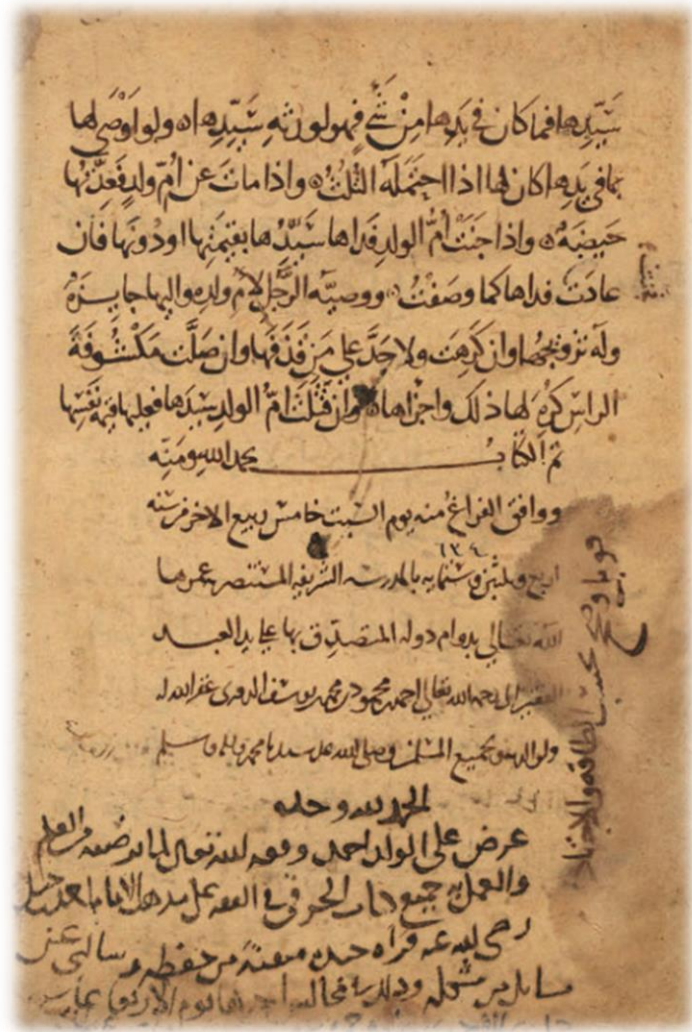 سَيِّدِها فما كان في يَدِها مِنْ شَيْءٍ فهو لورثةِ سَيِّدِها ولو اَوْصَى لها
بما في يدِها كان لها اذا احتَمَلَهُ الثلثُ واذا ماتَ عن اُمِّ ولدٍ فَعِدَّتُها
حَيضَةٌ واذا جَنَتْ اُمُّ الولدِ فَداها سَيِّدُها بقيمَتِها او دُونَها فان
عادَت فداها كما وصَفتُ ووصيَّة الرَّجُل لاُمِّ ولدِه واليها جايزةٌ
ولَه تزويجُها وان كَرِهَت ولا حَدَّ على مَن قَذَفَها وان صَلَّت مَكْشُوفَةَ
الراسِ كُرِهَ لها ذلك واَجزاها وان قَتَلَت امُّ الولدِ سيّدَها فعليها قيمة نَفسِها
تم الكتاب بحمد الله ومَنِّه
ووافق الفراغُ منه يوم السبت خامس ربيع الاخر من سنة
٦٣٤
اربع وثلثين وستمايه بالمدرسه الشريفه المستنصريه عمرها
الله تعالى بدوام دولة المتصدق بها على يد العبد
الفقير الى رحمة الله تعالى احمد بن محمود بن محمد بن يوسف غفر الله له
ولوالديه ولجميع المسلمين وصلى الله على سيدنا محمد واله وسلم
قوبل وصح بحسب الطاقة والاجتهاد
الحمد لله وحده
عرض علي الولد احمد وفقه الله تعالى لما يرضيه من العلم
والعمل به جميع كتاب الخرقي في الفقه على مذهب الامام احمد بن حنبل
رضي الله عنه قراه من حفظه وسالني عن
مسايل من مشكله وذلك في مجالس اخرها يوم